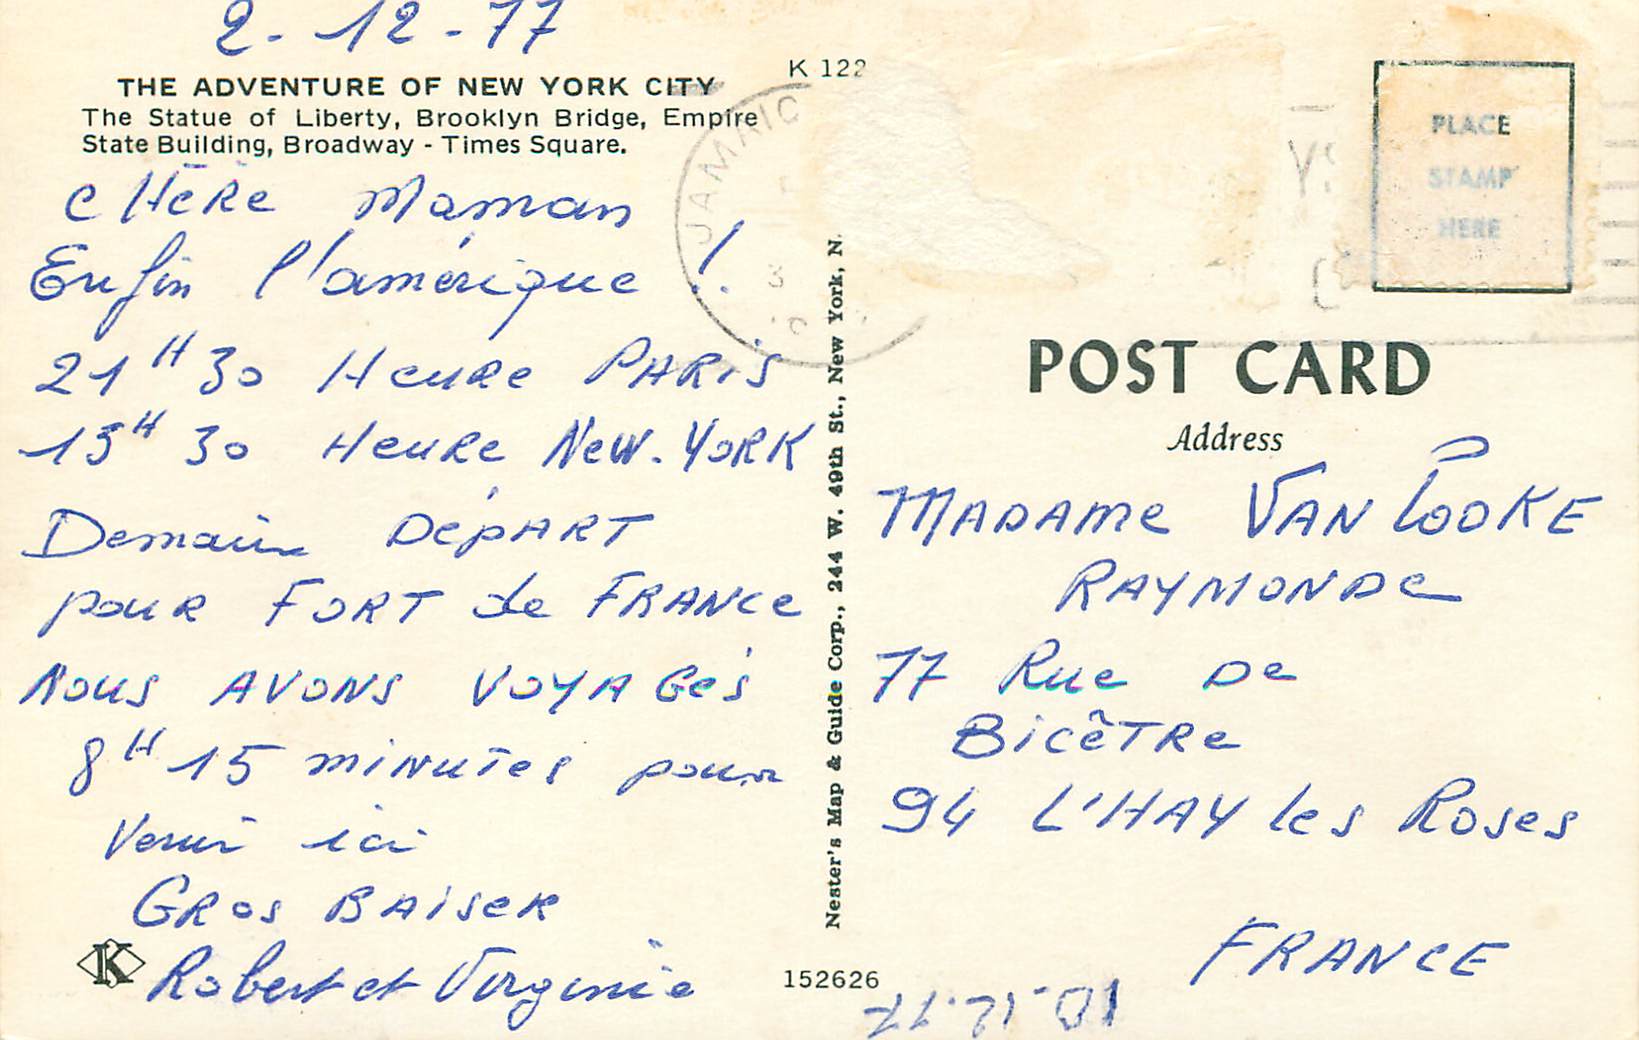 2-12-77
THE ADVENTURE OF NEW YORK CITY
The Statue of Liberty, Brooklyn Bridge, Empire
State Building, Broadway - Times Square.
CHÈRE Maman
Enfin l'amérique !.
21H30 Heure PARIS
15H30 Heure New-YORK
Demain DéPART
pour FORT de FRANCE
NOUS AVONS VOYAGés
8H15 minutes pour
Venir ici
GROS BAISER
Robert et Virginie
K
K 122
JAMAIC
3
Nester's Map & Guide Corp., 244 W. 49th St., New York, N.
152626
PLACE
STAMP
HERE
POST CARD
Address
MADAMe VAN LOOKE
RAYMONDe
77 Rue De
BicêTRe
94 L'HAY les Roses
FRANCE
10-12-77